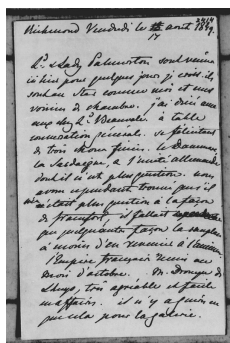 Richmond Vendredi le 17 août
1849.
Ld & Lady Palmerston sont venus
ici hier pour quelques jours je crois, ils
sont au Star comme moi et mes
voisins de chambre. j'ai dîné avec
eux chez Ld Beauvale. à table
conversation générale. se félicitant
de trois choses finies. le Danemark,
la Sardaigne, & l'unité allemande
dont il n'est plus question. nous
avons cependant trouvé que s'il
n'était plus question à la façon
de francfort, il fallait
quelque façon la remplacer
à moins d'en revenir à l'ancien
l'Empire français remis au
mois d'octobre. M. Drouyn de
Lhuys, très agréable et facile
en affaires. il n'y a qu'un
pour la galerie.